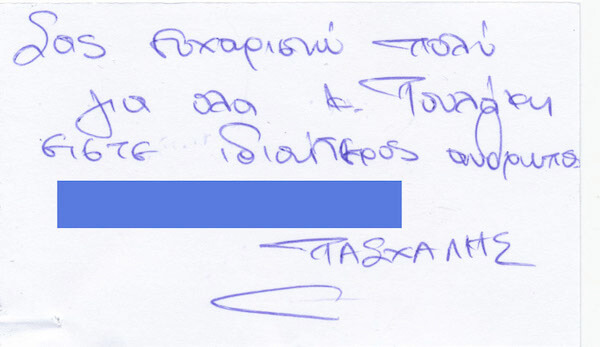 Σας ευχαριστώ πολύ
για ολα κ. Τουλάκη
ειστε ιδιαιτερος ανθρωπο
ΠΑΣΧΑΛΗΣ